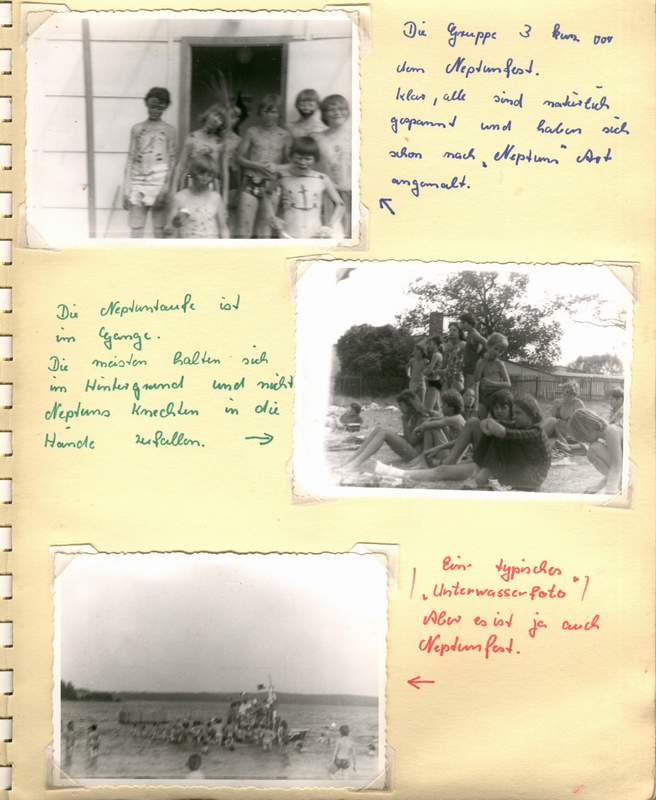 Die Gruppe 3 kurz vor
dem Neptunfest.
Klar, alle sind natürlich
gespannt und haben sich
schon nach „Neptuns" Art
angemalt.
Die Neptuntaufe ist
im Gange.
Die meisten halten sich
im Hintergrund um nicht
Neptuns Knechten in die
Hände zu fallen.
Ein typisches
„Unterwasserfoto"
Aber es ist ja auch
Neptunfest.